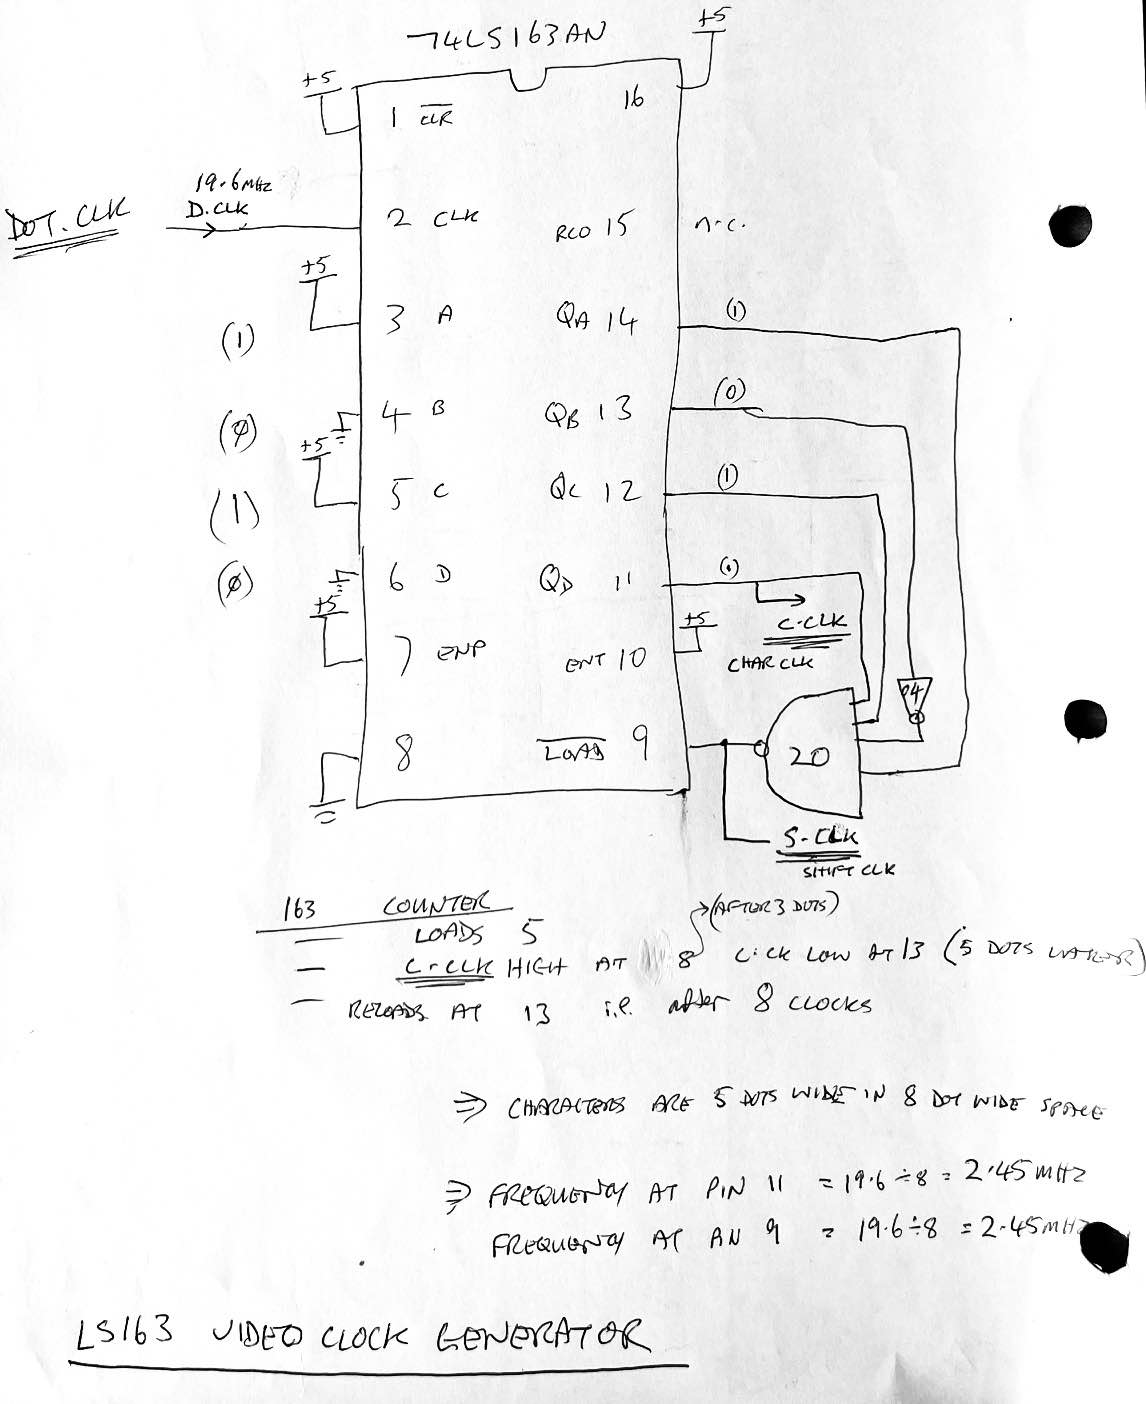 74LS163AN
+5
+5
1 CLR
16
19.6MHz
DOT. CLK
D.CLK
2 CLK
RCO 15
n.c.
+5
(1)
3 A
QA 14
(1)
(φ)
4 B
QB 13
(0)
+5
(1)
5 C
QC 12
(1)
(φ)
6 D
QD 11
+5
C-CLK
CHAR CLK
+5
7 ENP
ENT 10
04
8
LOAD 9
20
S-CLK
SHIFT CLK
163 COUNTER
(AFTER 3 DOTS)
— LOADS 5
— C-CLK HIGH AT 8 C.CK LOW AT 13 (5 DOTS LATER)
— RELOADS AT 13 i.e. after 8 CLOCKS
⇒ CHARACTERS ARE 5 DOTS WIDE IN 8 DOT WIDE SPACE
⇒ FREQUENCY AT PIN 11 = 19.6 ÷ 8 = 2.45MHz
FREQUENCY AT PIN 9 = 19.6÷8 = 2.45MHz
LS163 VIDEO CLOCK GENERATOR